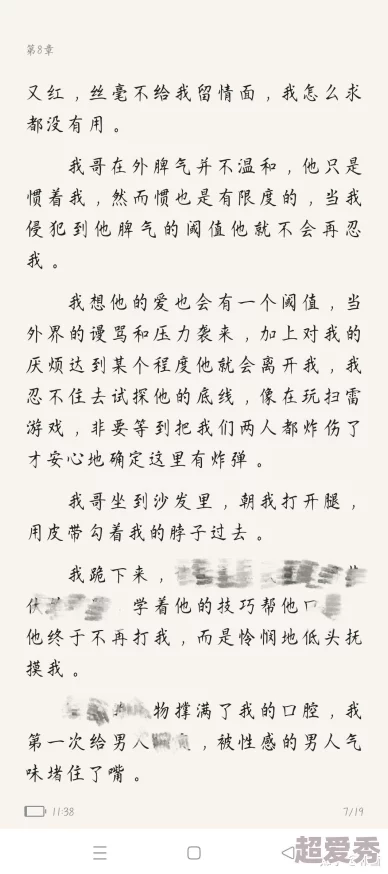 第8章
又红，丝毫不给我留情面，我怎么求
都没有用。
我哥在外脾气并不温和，他只是
惯着我，然而惯也是有限度的，当我
侵犯到他脾气的阈值他就不会再忍
我。
我想他的爱也会有一个阈值，当
外界的谩骂和压力袭来，加上对我的
厌烦达到某个程度他就会离开我，我
忍不住去试探他的底线，像在玩扫雷
游戏，非要等到把我们两人都炸伤了
才安心地确定这里有炸弹。
我哥坐到沙发里，朝我打开腿，
用皮带勾着我的脖子过去。
我跪下来，
学着他的技巧帮他
他终于不再打我，而是怜悯地低头抚
摸我。
物撑满了我的口腔，我
第一次给男人，被性感的男人气
味堵住了嘴。
11:38 7/19
超爱秀